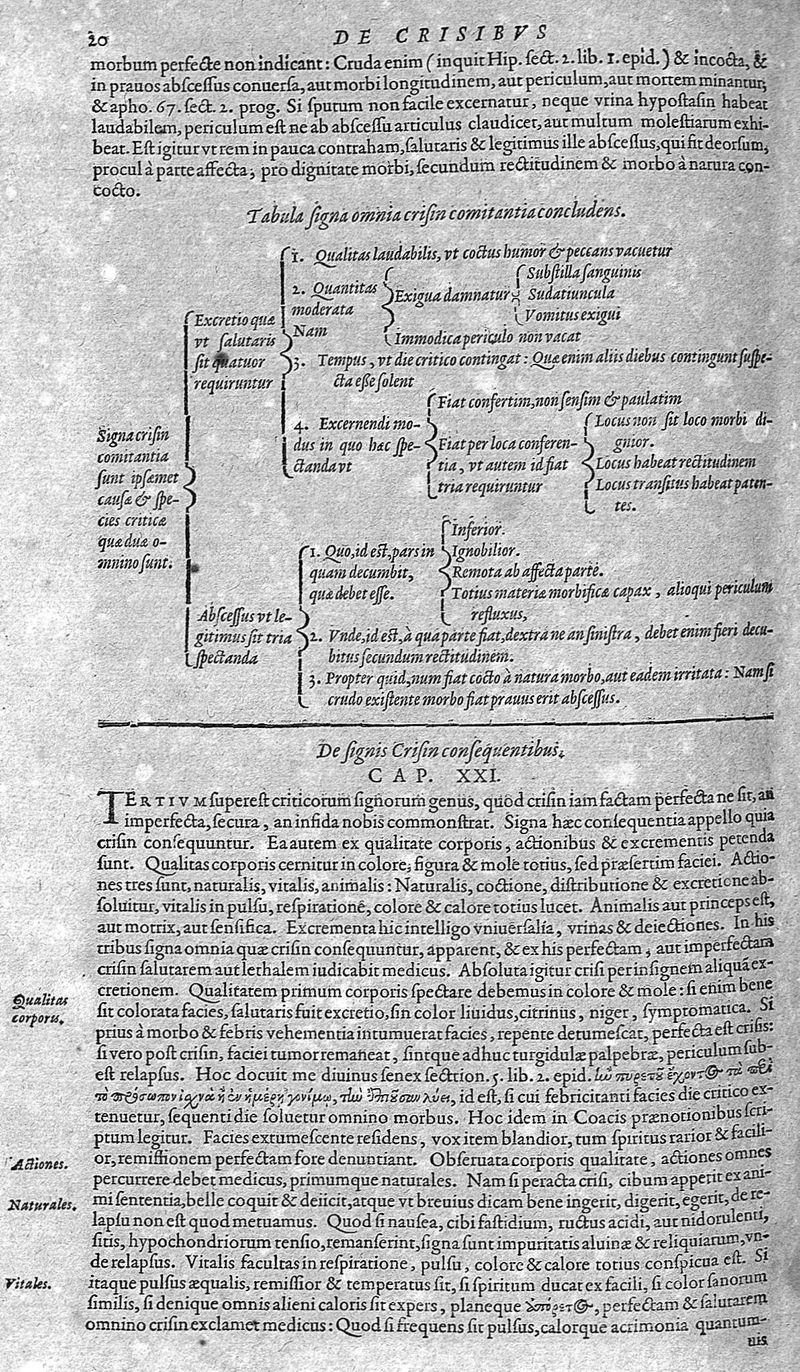 20 DE CRISIBVS
morbum perfecte non indicant: Cruda enim (inquit Hip. sect. 2. lib. 1. epid.) & incocta, &
in prauos abscessus conuersa, aut morbi longitudinem, aut periculum, aut mortem minantur,
& apho. 67. sect. 2. prog. Si sputum non facile excernatur, neque vrina hypostasin habeat
laudabilem, periculum est ne ab abscessu articulus claudicet, aut multum molestiarum exhi-
beat. Est igitur vt rem in pauca contraham, salutaris & legitimus ille abscessus, qui fit deorsum,
procul à parte affecta, pro dignitate morbi, secundum rectitudinem & morbo à natura con-
cocto.
Tabula signa omnia crisin comitantia concludens.
Signa crisin
comitantia
sunt ipsæmet
causæ & spe-
cies criticæ
quæ duæ o-
mnino sunt.
Excretio quæ
vt salutaris
sit quatuor
requiruntur
1. Qualitas laudabilis, vt coctus humor & peccans vacuetur
2. Quantitas
moderata
Nam
Exigua damnatur
Substilla sanguinis
Sudatiuncula
Vomitus exigui
Immodica periculo non vacat
3. Tempus, vt die critico contingat: Quæ enim aliis diebus contingunt suspe-
cta esse solent
4. Excernendi mo-
dus in quo hæc spe-
ctanda vt
Fiat confertim, non sensim & paulatim
Fiat per loca conferen-
tia, vt autem id fiat
tria requiruntur
Locus non sit loco morbi di-
gnior.
Locus habeat rectitudinem
Locus transitus habeat paten-
tes.
Abscessus vt le-
gitimus sit tria
spectanda
1. Quo, id est, pars in
quam decumbit,
quæ debet esse.
Inferior.
Ignobilior.
Remota ab affecta parte.
Totius materiæ morbificæ capax, alioqui periculum
refluxus,
2. Vnde, id est, à qua parte fiat, dextra ne an sinistra, debet enim fieri decu-
bitus secundum rectitudinem.
3. Propter quid, num fiat cocto à natura morbo, aut eadem irritata: Nam si
crudo existente morbo fiat prauus erit abscessus.
De signis Crisin consequentibus.
CAP. XXI.
TERTIVM superest criticorum signorum genus, quod crisin iam factam perfecta ne sit, an
imperfecta, secura, an infida nobis commonstrat. Signa hæc consequentia appello quia
crisin consequuntur. Ea autem ex qualitate corporis, actionibus & excrementis petenda
sunt. Qualitas corporis cernitur in colore, figura & mole totius, sed præsertim faciei. Actio-
nes tres sunt, naturalis, vitalis, animalis: Naturalis, coctione, distributione & excretione ab-
soluitur, vitalis in pulsu, respiratione, colore & calore totius lucet. Animalis aut princeps est,
aut motrix, aut sensifica. Excrementa hic intelligo vniuersalia, vrinas & deiectiones. In his
tribus signa omnia quæ crisin consequuntur, apparent, & ex his perfectam, aut imperfectam
crisin salutarem aut lethalem iudicabit medicus. Absoluta igitur crisi per insignem aliquā ex-
cretionem. Qualitatem primum corporis spectare debemus in colore & mole: si enim bene
Qualitas
corporis.
sit colorata facies, salutaris fuit excretio, sin color liuidus, citrinus, niger, symptomatica. Si
prius à morbo & febris vehementia intumuerat facies, repente detumescat, perfecta est crisis:
si vero post crisin, faciei tumor remaneat, sintque adhuc turgidulæ palpebræ, periculum sub-
est relapsus. Hoc docuit me diuinus senex sectrion. 5. lib. 2. epid.
id est, si cui febricitanti facies die critico ex-
tenuetur, sequenti die soluetur omnino morbus. Hoc idem in Coacis prænotionibus scri-
ptum legitur. Facies extumescente residens, vox item blandior, tum spiritus rarior & facili-
or, remissionem perfectam fore denuntiant. Obseruata corporis qualitate, actiones omnes
Actiones.
percurrere debet medicus, primumque naturales. Nam si peracta crisi, cibum appetit ex ani-
Naturales.
mi sententia, belle coquit & deiicit, atque vt breuius dicam bene ingerit, digerit, egerit, de re-
lapsu non est quod metuamus. Quod si nausea, cibi fastidium, ructus acidi, aut nidorulenti,
sitis, hypochondriorum tensio, remanserint, signa sunt impuritatis aluinæ & reliquiarum, vn-
de relapsus. Vitalis facultas in respiratione, pulsu, colore & calore totius conspicua est. Si
Vitales.
itaque pulsus æqualis, remissior & temperatus sit, si spiritum ducat ex facili, si color sanorum
similis, si denique omnis alieni caloris sit expers, planeque perfectam & salutarem
omnino crisin exclamet medicus: Quod si frequens sit pulsus, calorque acrimonia quantum-
uis